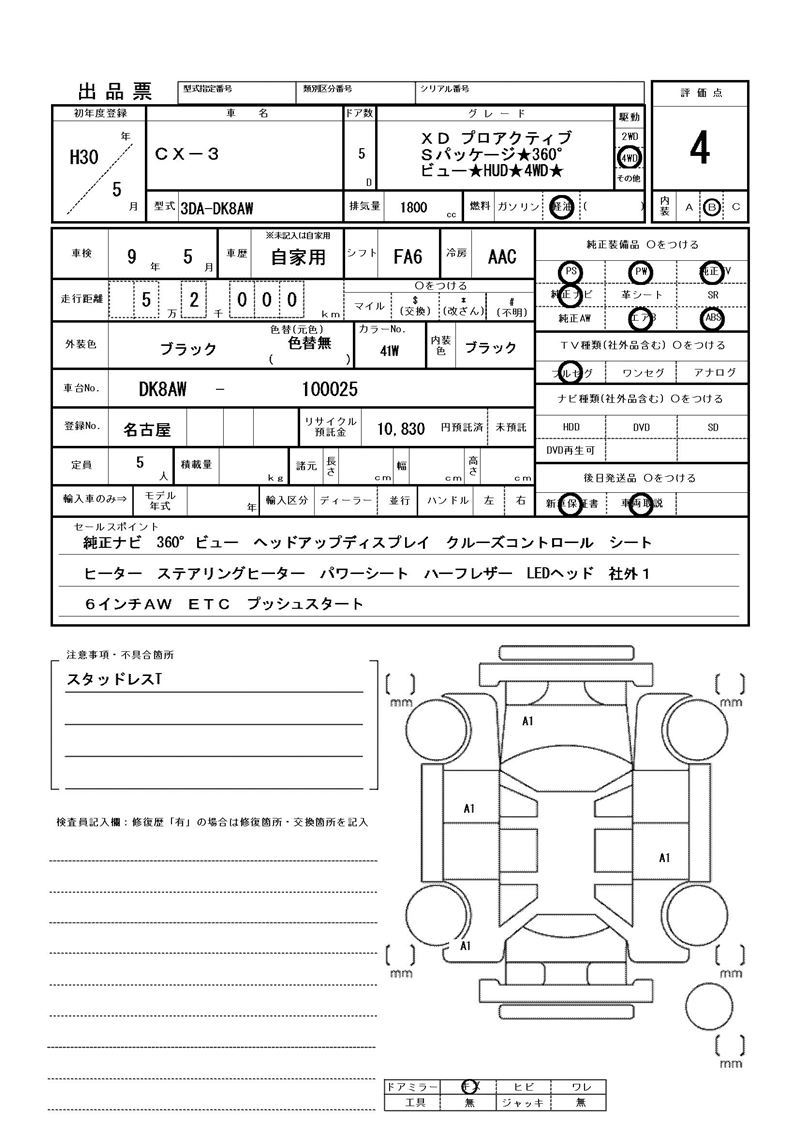 出品票
型式指定番号 類別区分番号 シリアル番号
評価点
4
内装 A B C
初年度登録 車名 ドア数 グレード 駆動
H30 年 5 月
CX-3
5 D
XD プロアクティブ
Sパッケージ★360°
ビュー★HUD★4WD★
2WD
4WD
その他
型式 3DA-DK8AW 排気量 1800 cc 燃料 ガソリン 軽油 ( )
車検 9 年 5 月 車歴 ※未記入は自家用 自家用 シフト FA6 冷房 AAC
走行距離 5 万 2 千 0 0 0 km
○をつける
マイル $(交換) *(改ざん) #(不明)
外装色 ブラック 色替(元色) 色替無 ( ) カラーNo. 41W 内装色 ブラック
車台No. DK8AW - 100025
登録No. 名古屋 リサイクル預託金 10,830 円預託済 未預託
定員 5 人 積載量 kg 諸元 長さ cm 幅 cm 高さ cm
輸入車のみ⇒ モデル年式 年 輸入区分 ディーラー 並行 ハンドル 左 右
純正装備品 ○をつける
PS PW 純正TV
純正ナビ 革シート SR
純正AW エアB ABS
TV種類(社外品含む) ○をつける
フルセグ ワンセグ アナログ
ナビ種類(社外品含む) ○をつける
HDD DVD SD
DVD再生可
後日発送品 ○をつける
新車保証書 車両取説
セールスポイント
純正ナビ 360°ビュー ヘッドアップディスプレイ クルーズコントロール シート
ヒーター ステアリングヒーター パワーシート ハーフレザー LEDヘッド 社外1
6インチAW ETC プッシュスタート
注意事項・不具合箇所
スタッドレスT
検査員記入欄:修復歴「有」の場合は修復箇所・交換箇所を記入
[ ] mm [ ] mm
A1
A1
A1
A1
[ ] mm [ ] mm
[ ] mm
ドアミラー キズ ヒビ ワレ
工具 無 ジャッキ 無